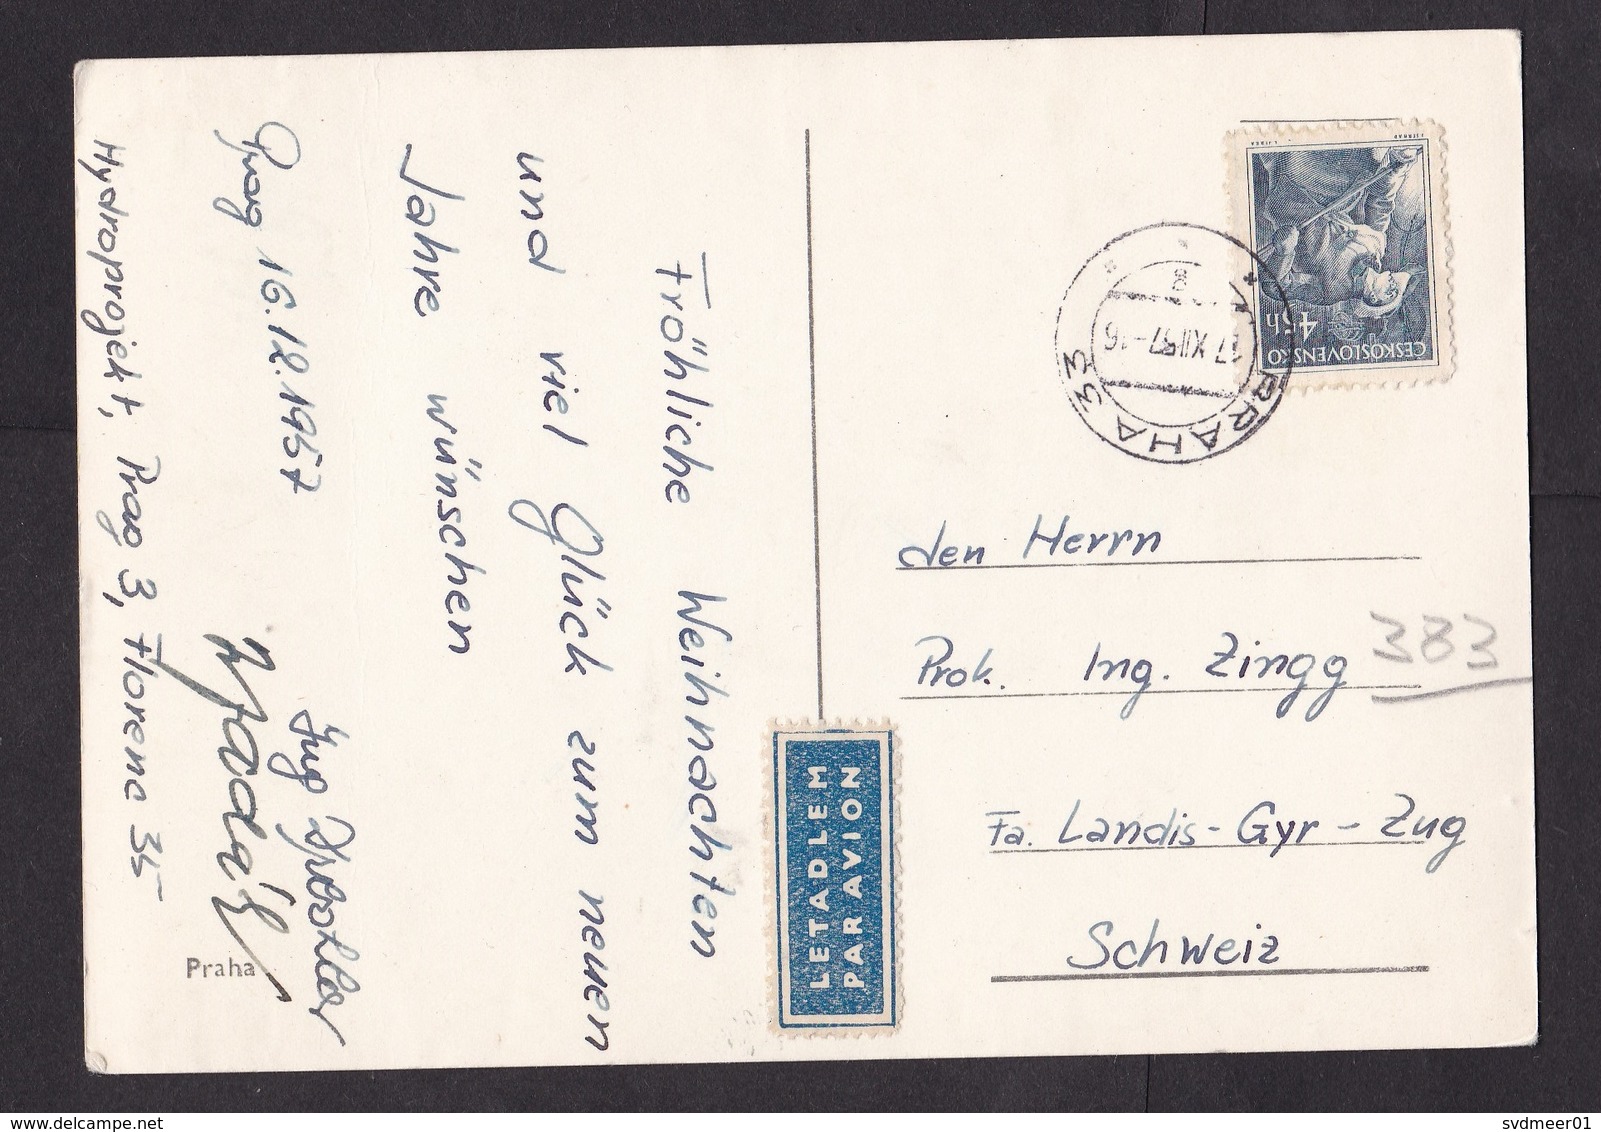 Fröhliche Weihnachten
und viel Glück zum neuen
Jahre wünschen
Prag 16.12.1957
Ing
Hydroprojekt, Prag 3, Florenc 35
Praha
LETADLEM
PAR AVION
ČESKOSLOVENSKO
45h
PRAHA 33
17.XII.57-16
8
den Herrn
Prok. Ing. Zingg
383
Fa. Landis-Gyr-Zug
Schweiz
svdmeer01